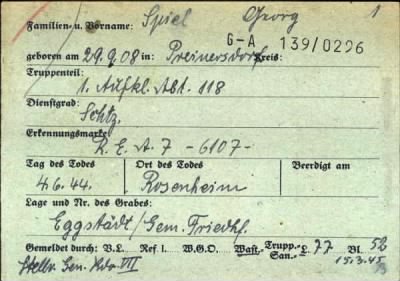 1
Familien- u. Vorname: Spiel Georg
G-A 139/0226
geboren am 29.9.08 in: Preinersdorf Kreis:
Truppenteil:
1. Aufkl. Abt. 118
Dienstgrad:
Schtz.
Erkennungsmarke
K. E. A. 7 - 6107 -
Tag des Todes Ort des Todes Beerdigt am
4.6.44. Rosenheim
Lage und Nr. des Grabes:
Eggstädt/Gem. Friedhf.
Gemeldet durch: V.L. Ref I. W.G.O. Wast.- Trupp.- L 77 Bl. 52
San.-
Stellv. Gen. Kdo VII 15.3.45